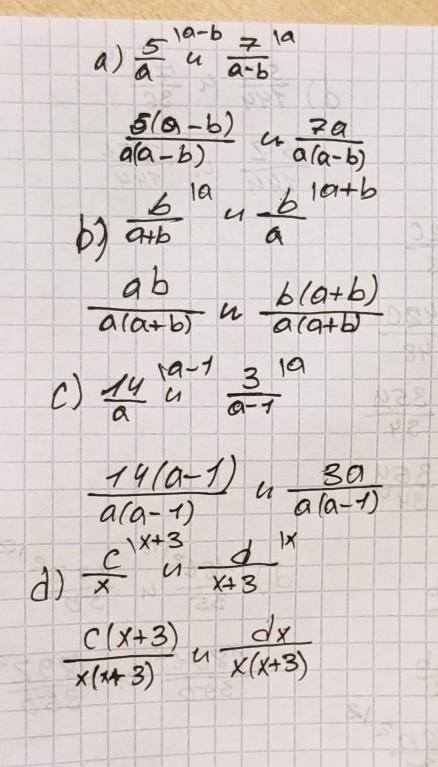 a) 5/a |a-b и 7/(a-b) |a
5(a-b)/a(a-b) и 7a/a(a-b)
b) b/(a+b) |a и b/a |a+b
ab/a(a+b) и b(a+b)/a(a+b)
c) 14/a |a-1 и 3/(a-1) |a
14(a-1)/a(a-1) и 3a/a(a-1)
d) c/x |x+3 и d/(x+3) |x
c(x+3)/x(x+3) и dx/x(x+3)